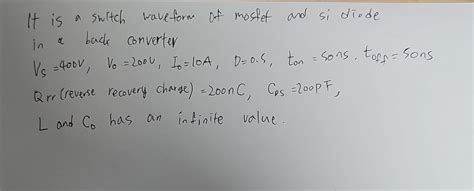 It is a switch waveform of mosfet and si diode
in a back converter
Vs =400V, Vo =200V, Io=10A, D=0.5, ton = 50ns, toff = 50ns
Qrr (reverse recovery charge) =200nC, CDS =200pF,
L and Co has an infinite value.